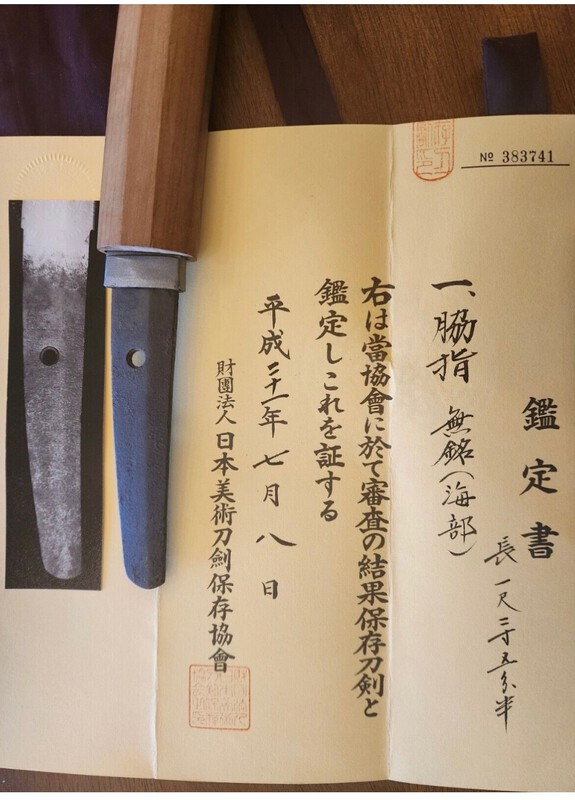 № 383741
鑑定書
長一尺三寸五分半
一、脇指 無銘(海部)
右は當協會に於て審査の結果保存刀剣と
鑑定しこれを証する
平成二十一年七月八日
財團法人日本美術刀劍保存協會